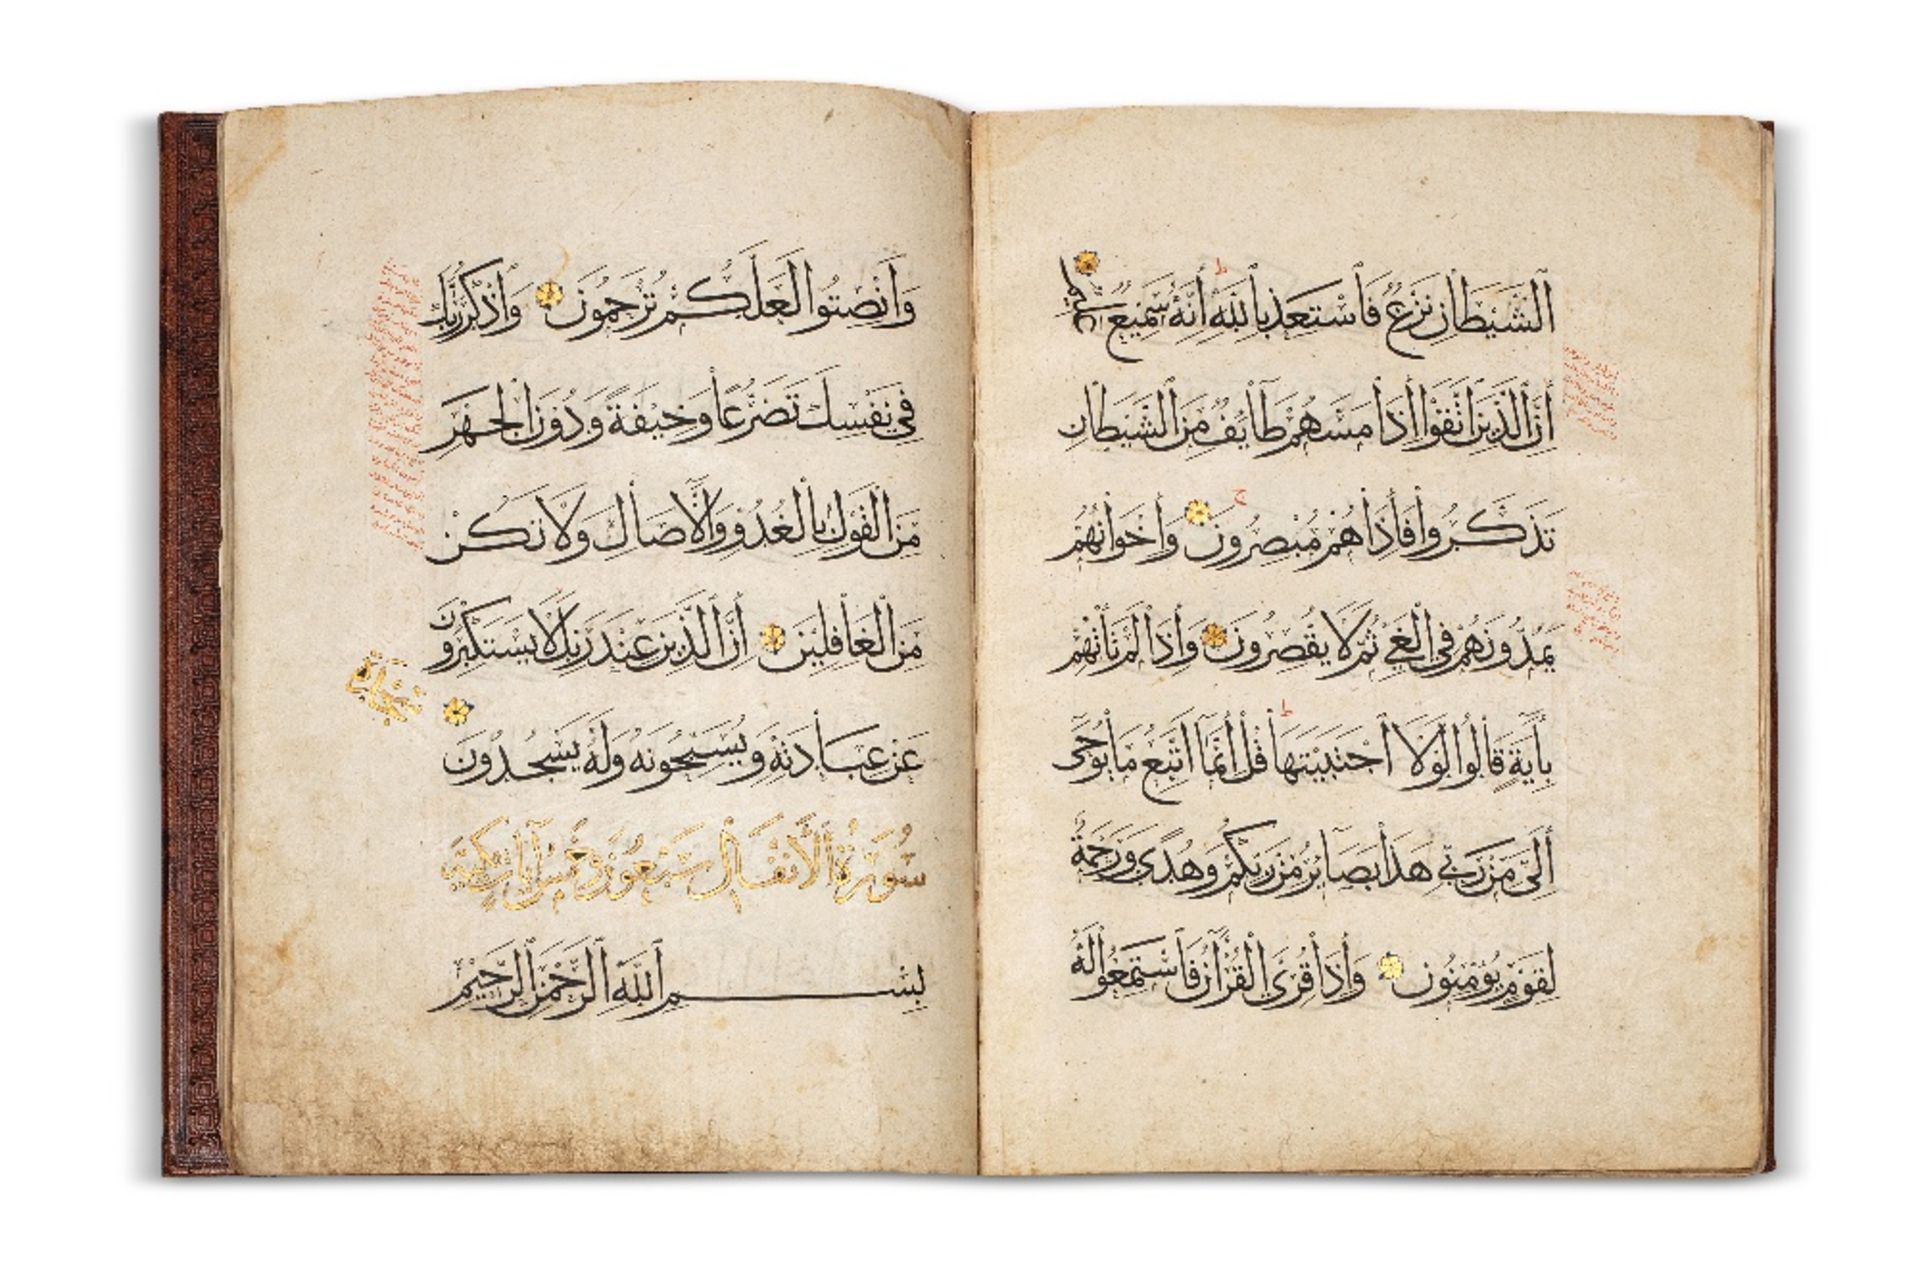 الشَّيْطَانِ نَزْغٌ فَاسْتَعِذْ بِاللَّهِ إِنَّهُ سَمِيعٌ عَلِيمٌ
إِنَّ الَّذِينَ اتَّقَوْا إِذَا مَسَّهُمْ طَائِفٌ مِنَ الشَّيْطَانِ
تَذَكَّرُوا فَإِذَا هُمْ مُبْصِرُونَ وَإِخْوَانُهُمْ
يَمُدُّونَهُمْ فِي الْغَيِّ ثُمَّ لَا يُقْصِرُونَ وَإِذَا لَمْ تَأْتِهِمْ
بِآيَةٍ قَالُوا لَوْلَا اجْتَبَيْتَهَا قُلْ إِنَّمَا أَتَّبِعُ مَا يُوحَى
إِلَيَّ مِنْ رَبِّي هَذَا بَصَائِرُ مِنْ رَبِّكُمْ وَهُدًى وَرَحْمَةٌ
لِقَوْمٍ يُؤْمِنُونَ وَإِذَا قُرِئَ الْقُرْآنُ فَاسْتَمِعُوا لَهُ
وَأَنْصِتُوا لَعَلَّكُمْ تُرْحَمُونَ وَاذْكُرْ رَبَّكَ
فِي نَفْسِكَ تَضَرُّعًا وَخِيفَةً وَدُونَ الْجَهْرِ
مِنَ الْقَوْلِ بِالْغُدُوِّ وَالْآصَالِ وَلَا تَكُنْ
مِنَ الْغَافِلِينَ إِنَّ الَّذِينَ عِنْدَ رَبِّكَ لَا يَسْتَكْبِرُونَ
عَنْ عِبَادَتِهِ وَيُسَبِّحُونَهُ وَلَهُ يَسْجُدُونَ
سُورَةُ الْأَنْفَالِ سَبْعُونَ وَخَمْسُ آيَاتٍ
بِسْمِ اللَّهِ الرَّحْمَنِ الرَّحِيمِ